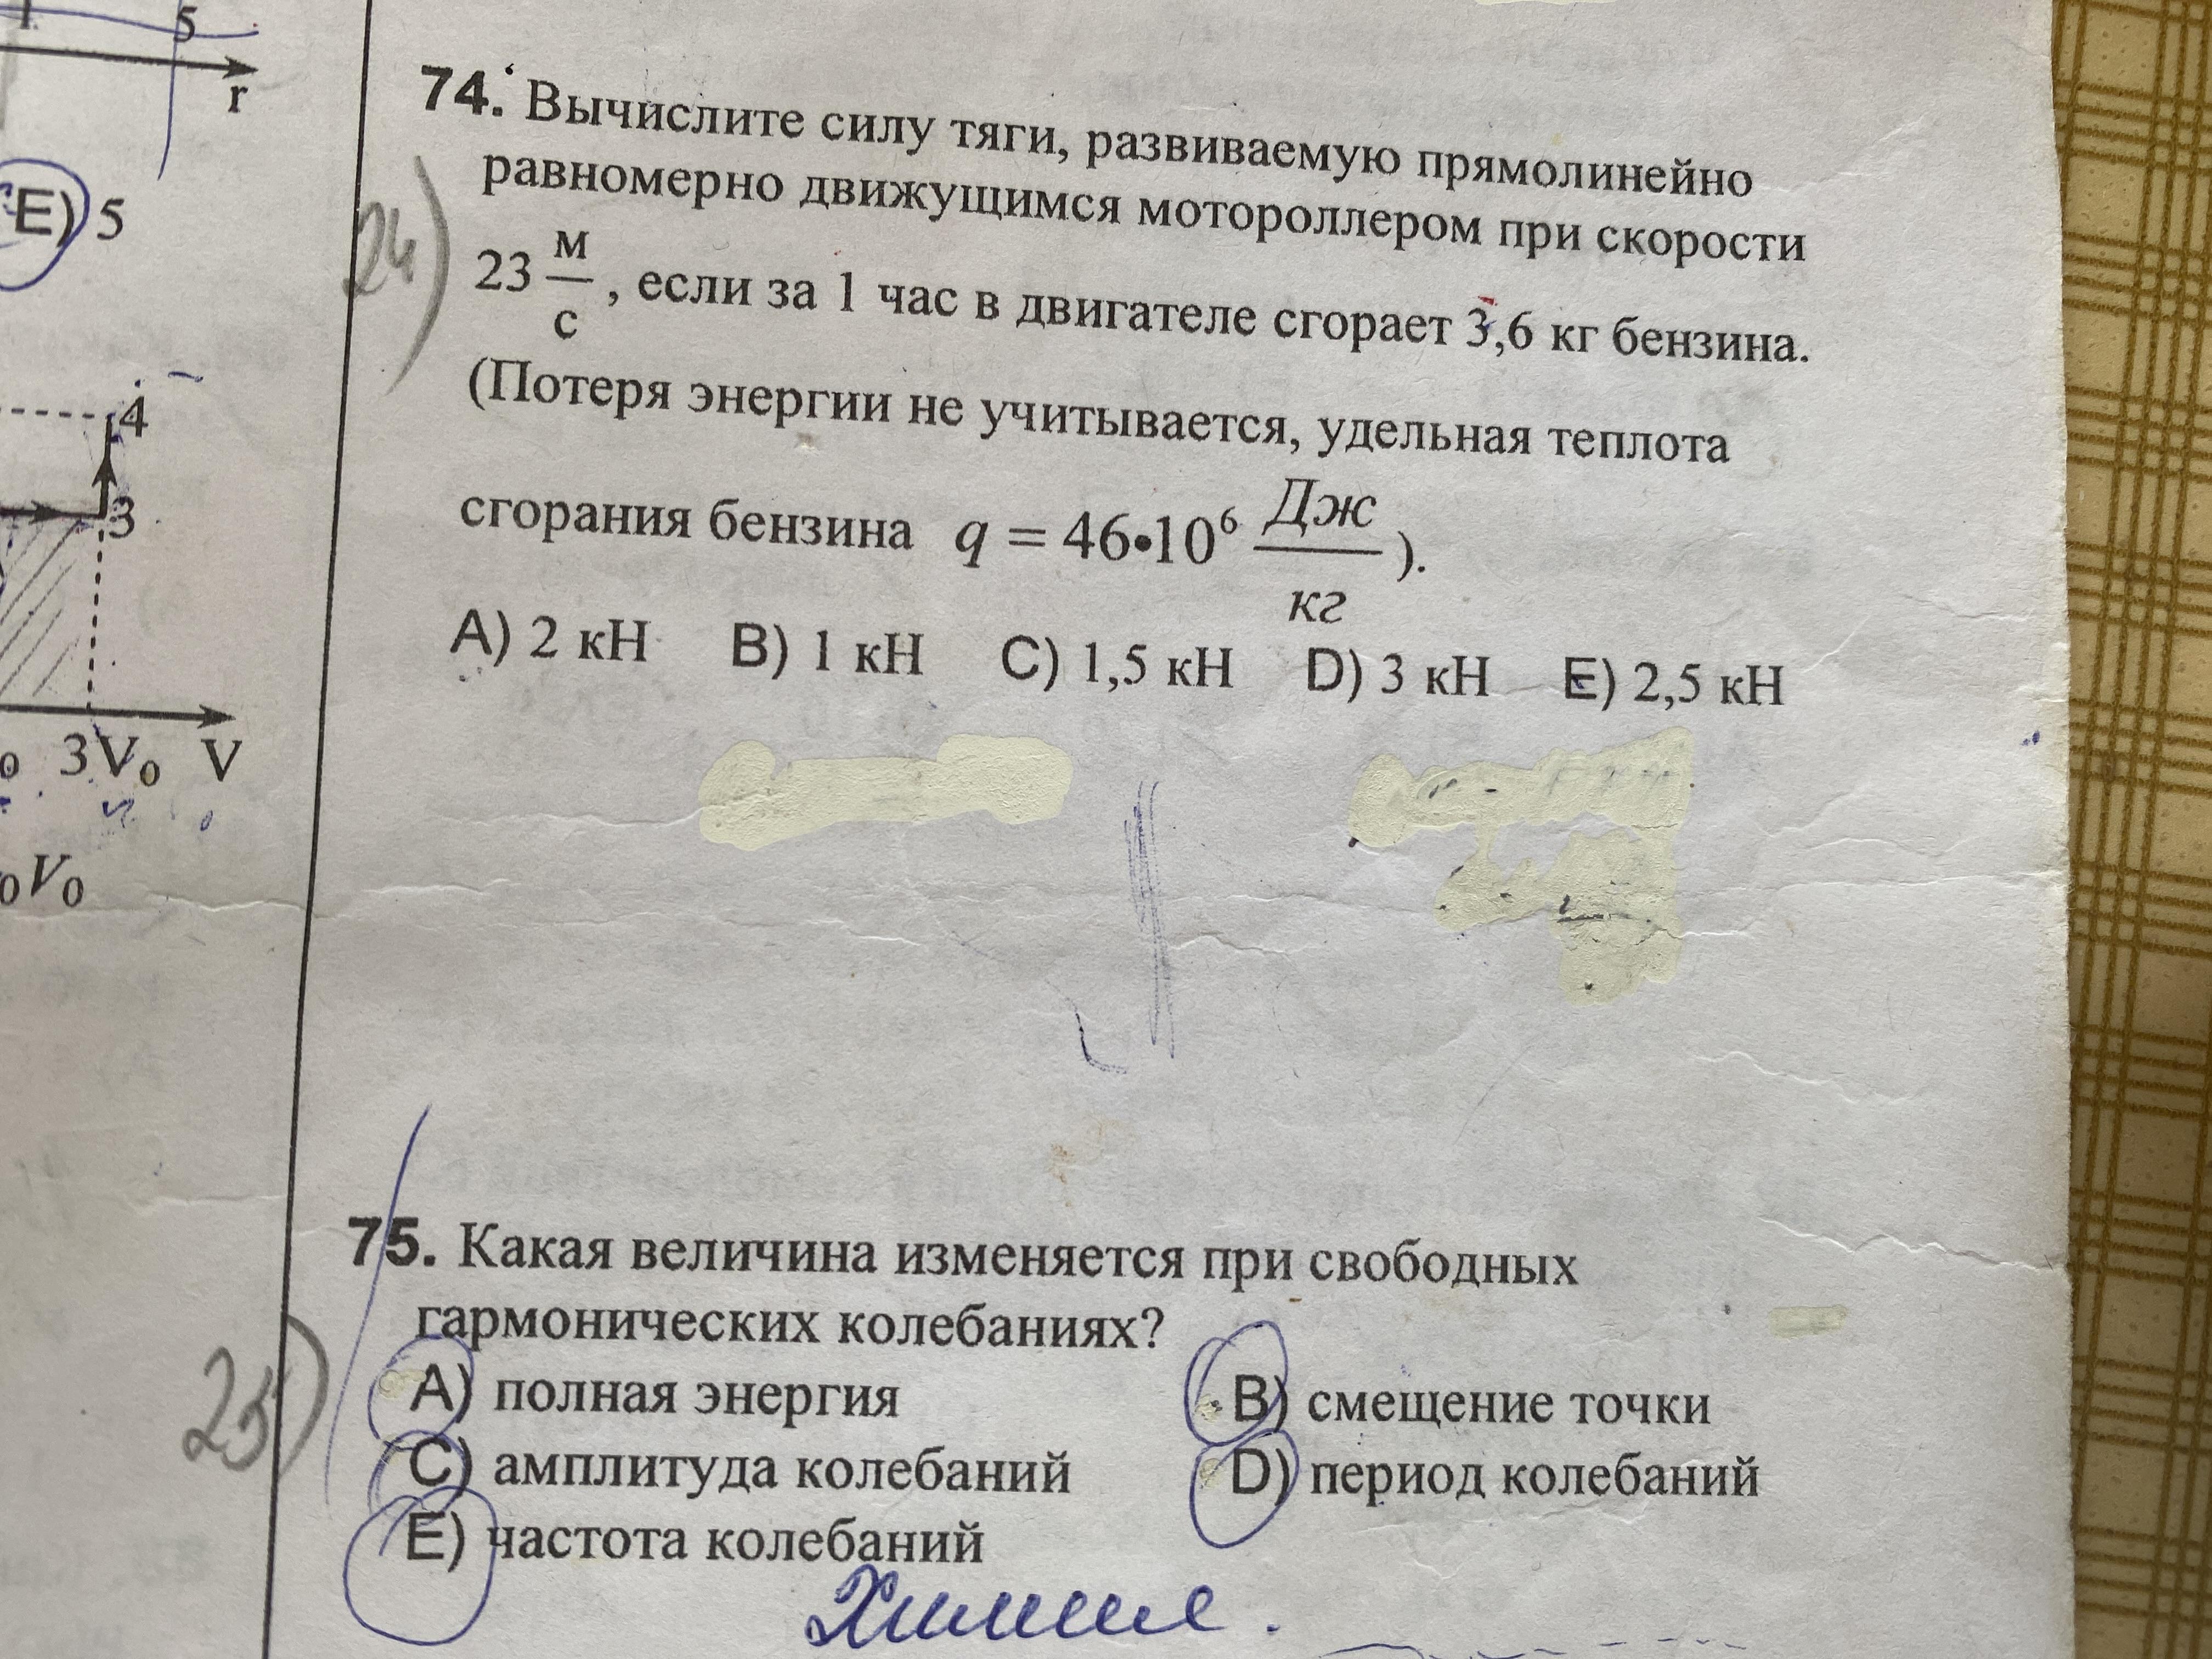 1 5
r
E) 5
4
3
3V₀ V
₀V₀
24)
74. Вычислите силу тяги, развиваемую прямолинейно
равномерно движущимся мотороллером при скорости
23 м/с, если за 1 час в двигателе сгорает 3,6 кг бензина.
(Потеря энергии не учитывается, удельная теплота
сгорания бензина q = 46•10⁶ Дж/кг ).
A) 2 кН B) 1 кН C) 1,5 кН D) 3 кН E) 2,5 кН
25)
75. Какая величина изменяется при свободных
гармонических колебаниях?
A) полная энергия B) смещение точки
C) амплитуда колебаний D) период колебаний
E) частота колебаний
Химия.